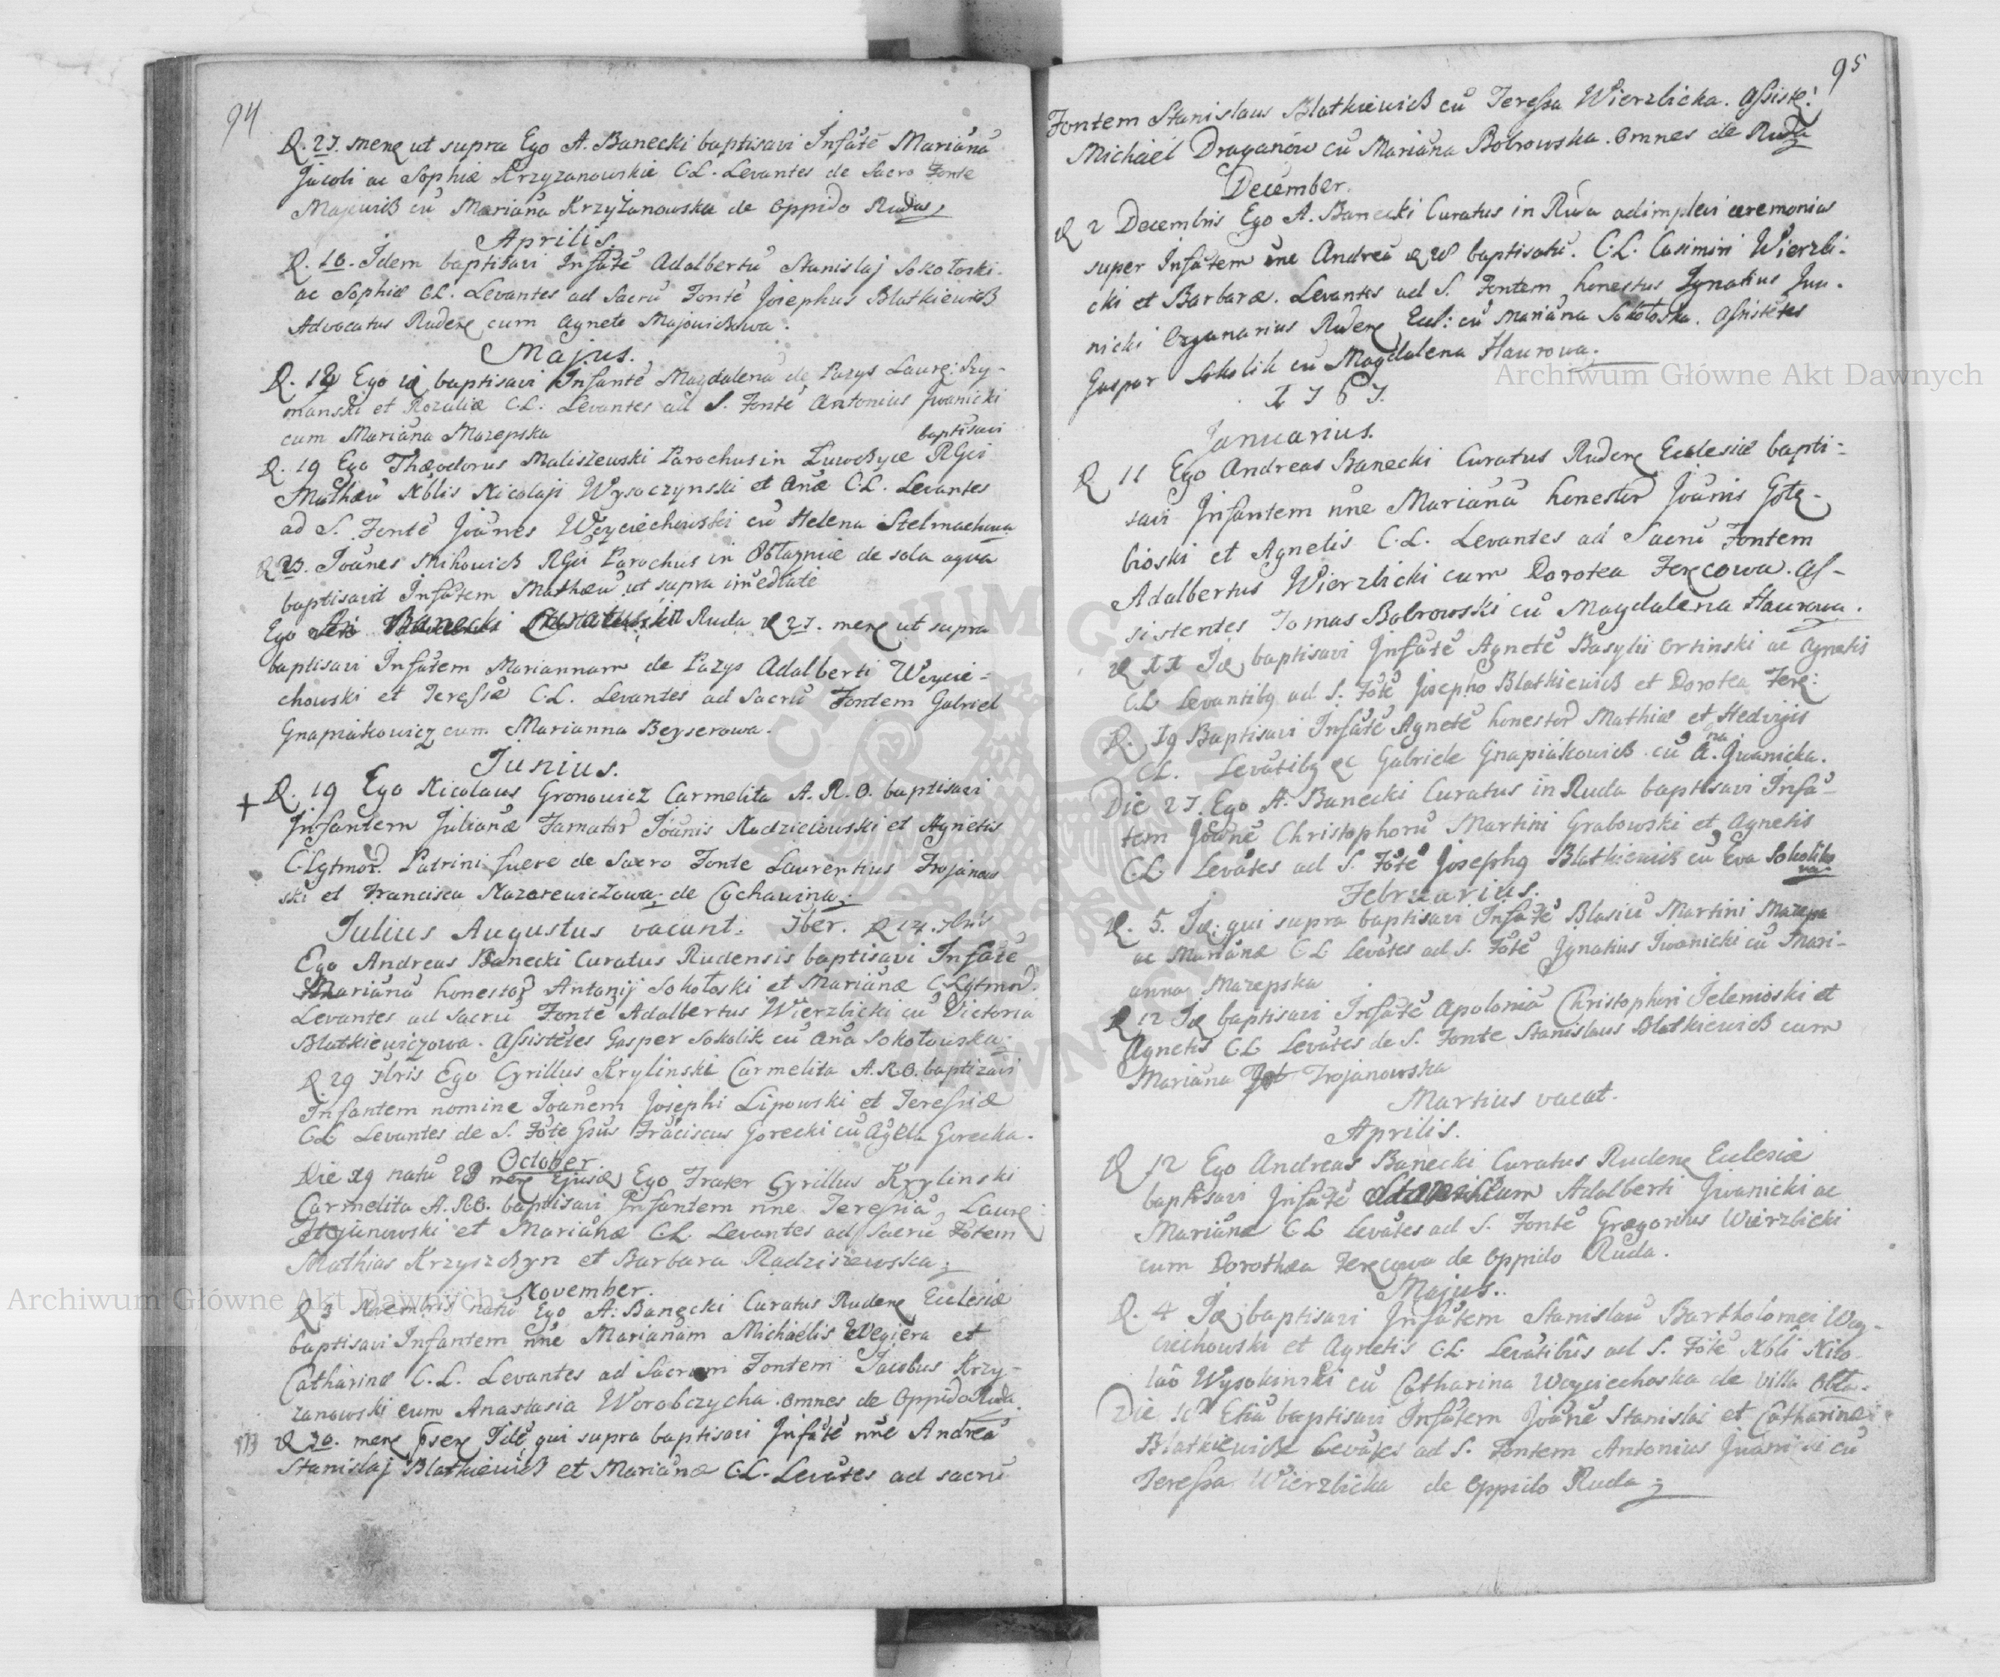 94
D. 27. mene ut supra Ego A. Banecki baptisavi Infātē Marianā
Jacobi ac Sophiæ Krzyzanowskie C.L. Levantes de Sacro Fonte
Majewicz cū Mariāna Krzyżanowska de Oppido Rudas
Aprilis.
D. 10. Idem baptisavi Infātē Adalbertū Stanislaj Sokołoski
ac Sophiæ C.L. Levantes ad Sacrū Fontē Josephus Blatkiewicz
Advocatus Rudeñ cum Agnete Majowiczowa.
Majus.
D. 18 Ego id baptisavi Infantē Magdalenā de Pazys Laurē: Szy-
manski et Rozaliæ C.L. Levantes ad S. Fontē Antonius Jwanicki
cum Mariāna Mazepska
baptisavi
D. 19 Ego Thæodorus Maliszewski Parochus in RGri
Mathæū Nblis Nicolaji Wysoczynski et Anæ C.L. Levantes
ad S. Fontē Joānes Woyciechowski cū Helena Stelmachowa
D 23. Joānes RGri Parochus in de sola aqua
baptisavit Infātem Mathæū ut supra imediatè
Ego Banecki Curatus in Ruda D 27. mene ut supra
baptisavi Infātem Mariannam de Pazys Adalberti Woycie=
chowski et Teressiæ C.L. Levantes ad Sacrū Fontem Gabriel
Gnapiakowicz cum Marianna Beyserowa.
Junius.
+ D. 19 Ego Nicolaus Gronowicz Carmelita A. R. O. baptisavi
Infantem Julianā Famator Joānis Radzieiowski et Agnetis
C.Lgtmor. Patrini fuere de Sacro Fonte Laurentius Trojanow
ski et Francisca Nazarewiczowa de Cochawina
Julius Augustus vacant. 7ber. D 14 7bris
Ego Andreas Banecki Curatus Rudensis baptisavi Infātē
Marianā honestor Antonij Sokołoski et Marianæ C.Lgtmor.
Levantes ad Sacrū Fontē Adalbertus Wierzbicki cū Victoria
Blatkiewiczowa. Assistētes Gasper Sokolik cū Anā Sokołowska.
D 29 7bris Ego Cyrillus Krylinski Carmelita A.R.O. baptizavi
Infantem nomine Joānem Josephi Lipowski et Teressiæ
C.L. Levantes de S. Fōte Gsūs Frāciscus Gorecki cū Agāta Gorecka.
October
Die 29 natū 28 mene ejusd Ego Frater Cyrillus Krylinski
Carmelita A.R.O. baptisavi Infantem nñe Teressiā, Laurē:
Trojanowski et Mariānæ C.L. Levantes ad Sacrū Fōtem
Mathias et Barbara Radziszewska
November.
D 3 Novembris natū Ego A. Banecki Curatus Rudene Eclesiæ
baptisavi Infantem nñe Marianam Michaëlis Wegiera et
Catharinæ C.L. Levantes ad Sacrum Fontem Jacobus Krzy-
zanowski cum Anastasia Worobczycha. omnes de Oppido Ruda
D 30. mene Idē qui supra baptisavi Infātē nñe Andreā
Stanislaj Blatkiewicz et Mariānæ C.L. Levātes ad sacrū
95
Fontem Stanislaus Blatkiewicz cū Teressa Wierzbicka. Assistē:
Michaël Draganow cū Mariāna Bobrowska. omnes de Ruda
December.
D 2 Decembris Ego A. Banecki Curatus in Ruda adimplevi ceremonias
super Infātem nñe Andreā baptisatū. C.L. Casimiri Wierzbi-
cki et Barbaræ. Levantes ad S. Fontem honestus Ignatius Jwa-
nicki Organarius Rudene Ecl: cū Mariāna Sokołoska. Assistētes
Gaspar Sokolik cū Magdalena Haurowa.
1767.
Januarius.
D 11 Ego Andreas Banecki Curatus Rudene Eclesiæ bapti=
savi Infantem nñe Marianā honestor Joānis Gołę-
bioski et Agnetis C.L. Levantes ad Sacrū Fontem
Adalbertus Wierzbicki cum Dorotea Ferecowa. As-
sistentes Tomas Bobrowski cū Magdalena Haurowa.
D 11 Id baptisavi Infātē Agnetē Basylii Ortinski ac Agnetis
C.L. Levantibq ad S. Fōtē Josepho Blatkiewicz et Dorotea Fere:
D. 19 Baptisavi Infātē Agnetē honestor Mathiæ et Hedvigis
C.L. Levātibq Gabriele Gnapiakowicz cū A.na Jwanicka.
Die 27. Ego A. Banecki Curatus in Ruda baptisavi Infā-
tem Joānē Christophorū Martini Grabowski et Agnetis
C.L. Levātes ad S. Fōtē Josephq Blatkiewicz cū Eva Sokoliko
wa.
Februarius.
D. 5. Id: qui supra baptisavi Infātē Blasiū Martini Mazepa
ac Mariānæ C.L. Levātes ad S. Fōtē Jgnatius Jwanicki cū Mari-
anna Mazepska
D 12 Id baptisavi Infātē Apoloniā Christophori Jelenioski et
Agnetis C.L. Levātes de S. Fonte Stanislaus Blatkiewicz cum
Mariāna Trojanowska
Martius vacat.
Aprilis.
D 12 Ego Andreas Banecki Curatus Rudene Eclesiæ
baptisavi Infātē Adalberti Jwanicki ac
Mariānæ C.L. Levātes ad S. Fontē Gregorius Wierzbicki
cum Dorothæa Ferecowa de Oppido Ruda.
Majus.
D. 4 Id baptisavi Infātem Stanislaū Bartholomei Woy-
ciechowski et Agnetis C.L. Levātibus ad S. Fōtē Nbli Nico-
laō Wysokinski cū Catharina Woyciechoska de villa
Die Etiā baptisavi Infātem Joānē Stanislai et Catharinæ
Blatkiewicz Levātes ad S. Fontem Antonius Jwanicki cū
Teressa Wierzbicka de Oppido Ruda
Archiwum Główne Akt Dawnych
Archiwum Główne Akt Dawnych